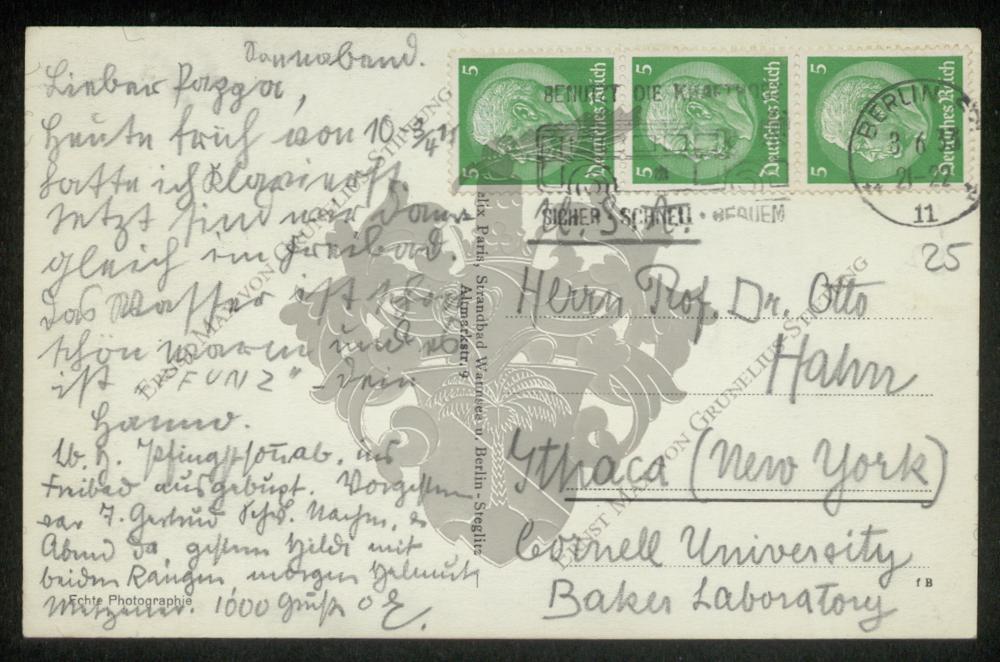 Sonnabend.
Lieber Pappa,
Heute früh von 10 3/4 11
hatte ich Klavierst.
Jetzt sind wir dann
gleich im Freibad.
das Wasser ist schon
schön warm und es
ist "FUNZ". Dein
Hanno.
Lb. H. Pfingstsonnab. ins
Freibad ausgebüxt. Vorgestern
war T. Gertrud Schb. Nachm. &
Abend da, gestern Hilde mit
beiden Rangen morgen Helmuth
Metzener. 1000 Grüße
Echte Photographie
5 Deutsches Reich
5 Deutsches Reich
5 Deutsches Reich
BENUTZT DIE KRAFTPOST
SICHER · SCHNELL · BEQUEM
BERLIN
3.6.33
21-22
11
25
U.S.A.
Herrn Prof. Dr. Otto
Hahn
Ithaca (New York)
Cornell University
Baker Laboratory
Felix Paris, Strandbad Wannsee u. Berlin-Steglitz
Altmarkstr. 9
f B
ERNST MAX VON GRUNELIUS-STIFTUNG
ERNST MAX VON GRUNELIUS-STIFTUNG